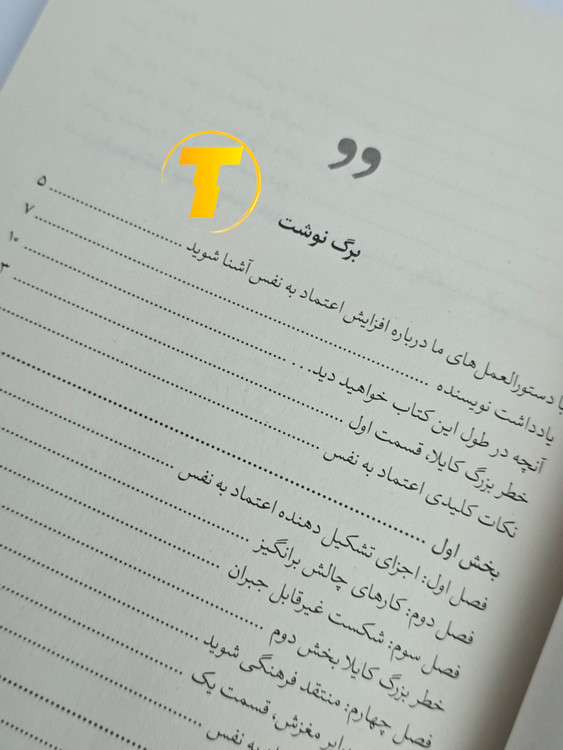 ”
T
برگ نوشت
با دستورالعمل‌های ما درباره افزایش اعتماد به نفس آشنا شوید ۵
یادداشت نویسنده ۷
آنچه در طول این کتاب خواهید دید... ۱۰
خطر بزرگ کایلا، قسمت اول
نکات کلیدی اعتماد به نفس
بخش اول
فصل اول: اجزای تشکیل دهنده اعتماد به نفس
فصل دوم: کارهای چالش برانگیز
فصل سوم: شکست غیرقابل جبران
خطر بزرگ کایلا بخش دوم
فصل چهارم: منتقد فرهنگی شوید
مغزش، قسمت یک
به نفس